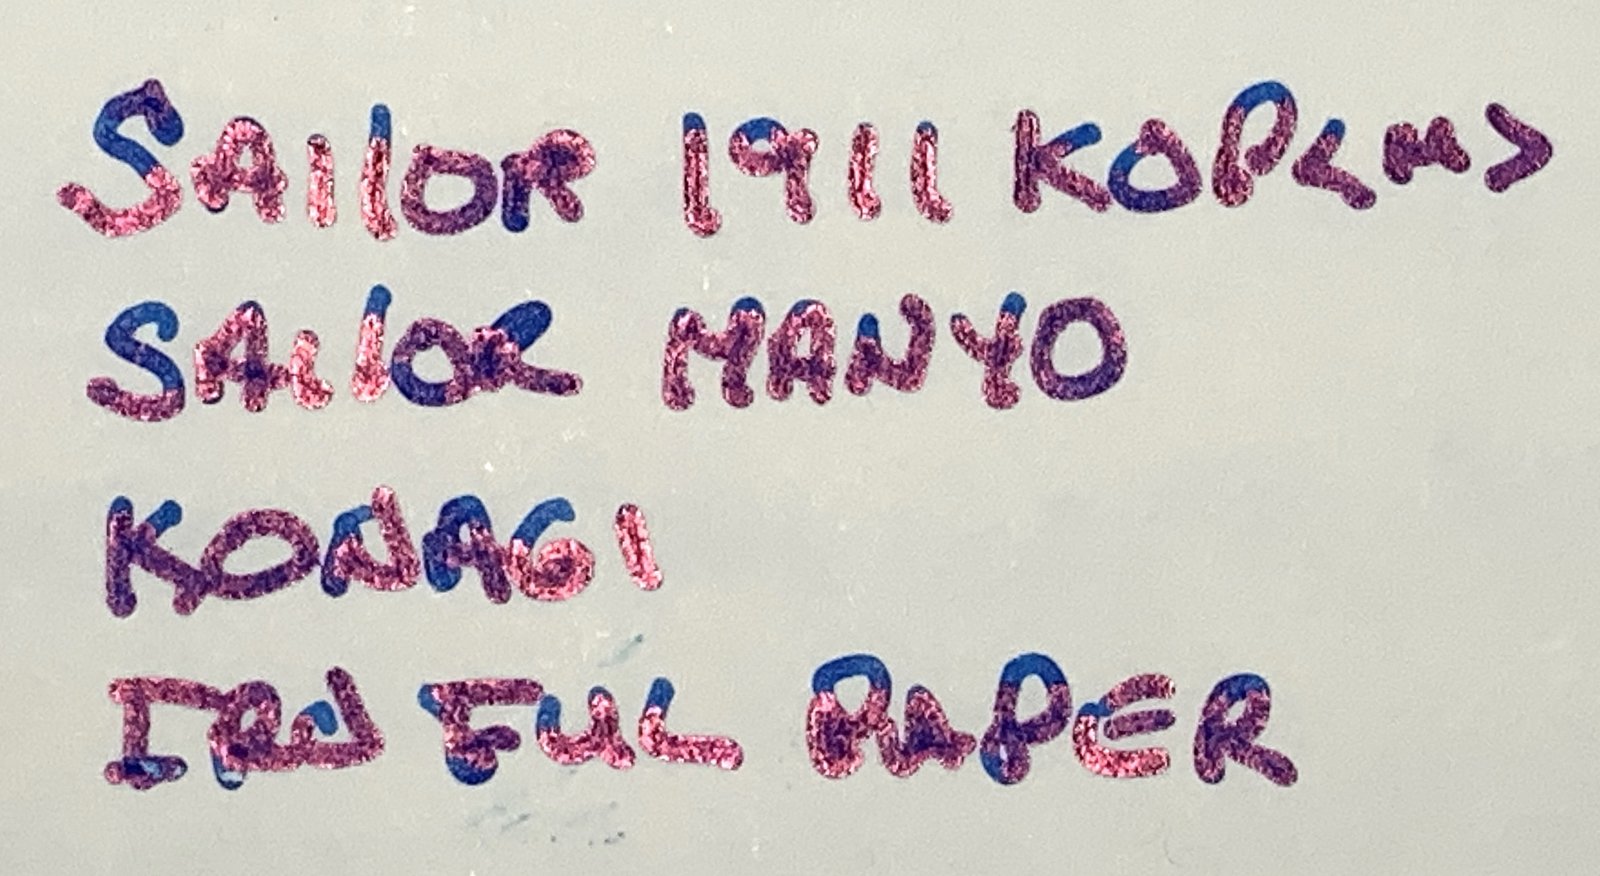 SAILOR 1911 KOP<M>
SAILOR MANYO
KONAGI
FUL PAPER